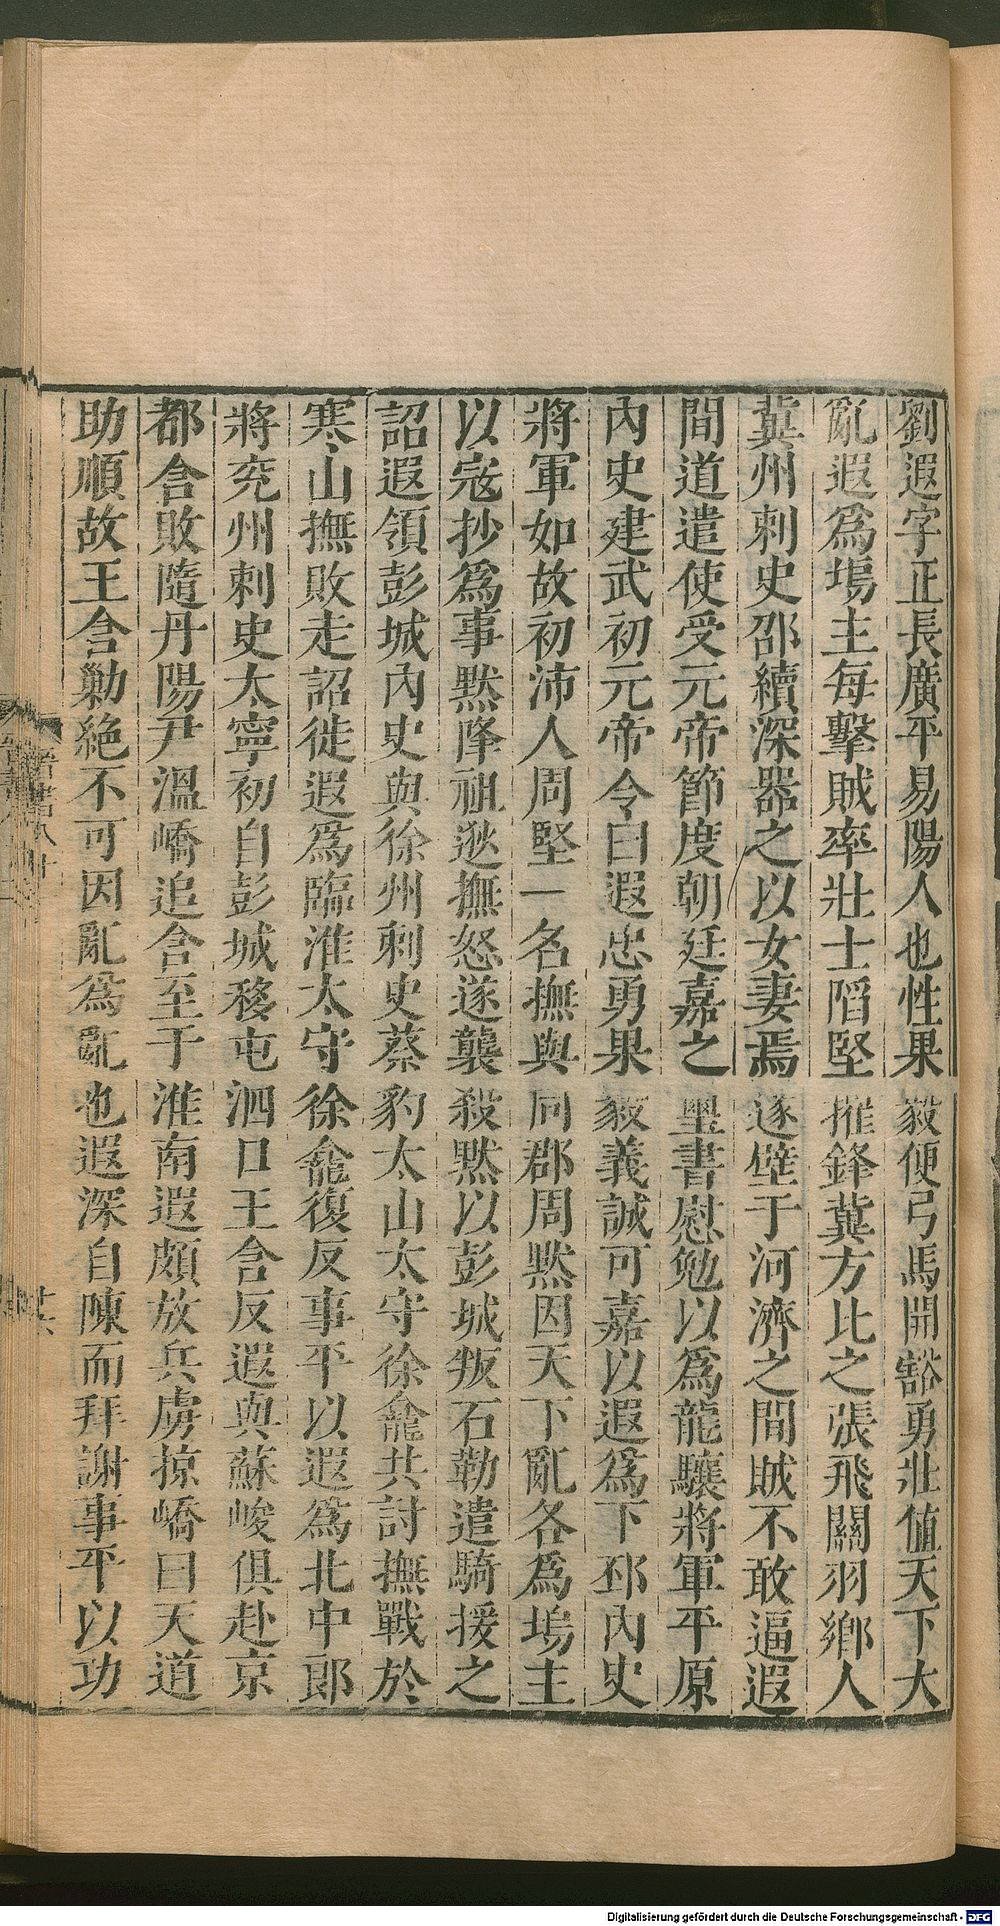 劉遐字正長廣平易陽人也性果毅便弓馬開豁勇壯値天下大
亂遐爲塢主每擊賊率壯士陷堅摧鋒冀方比之張飛關羽鄉人
冀州刺史邵續深器之以女妻焉遂壁于河濟之間賊不敢逼遐
間道遣使受元帝節度朝廷嘉之璽書慰勉以爲龍驤將軍平原
內史建武初元帝令曰遐忠勇果毅義誠可嘉以遐爲下邳內史
將軍如故初沛人周堅一名撫與同郡周默因天下亂各爲塢主
以宼抄爲事默降祖逖撫怒遂襲殺默以彭城叛石勒遣騎援之
詔遐領彭城內史與徐州刺史蔡豹太山太守徐龕共討撫戰於
寒山撫敗走詔徙遐爲臨淮太守徐龕復反事平以遐爲北中郎
將兗州刺史太寧初自彭城移屯泗口王含反遐與蘇峻俱赴京
都含敗隨丹陽尹溫嶠追含至于淮南遐頗放兵虜掠嶠曰天道
助順故王含勦絶不可因亂爲亂也遐深自陳而拜謝事平以功
Digitalisierung gefördert durch die Deutsche Forschungsgemeinschaft - DFG